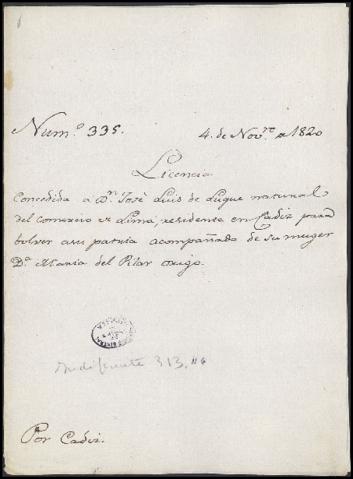 Num.º 335. 4. de Nov.re de 1820
Licencia
Concedida a Dn. José Luis de Luque natural
del Comercio de Lima, residente en Cadiz para
bolver a su patria acompañado de su muger
Dª Maria del Pilar
Indiferente 313
Por Cadiz.